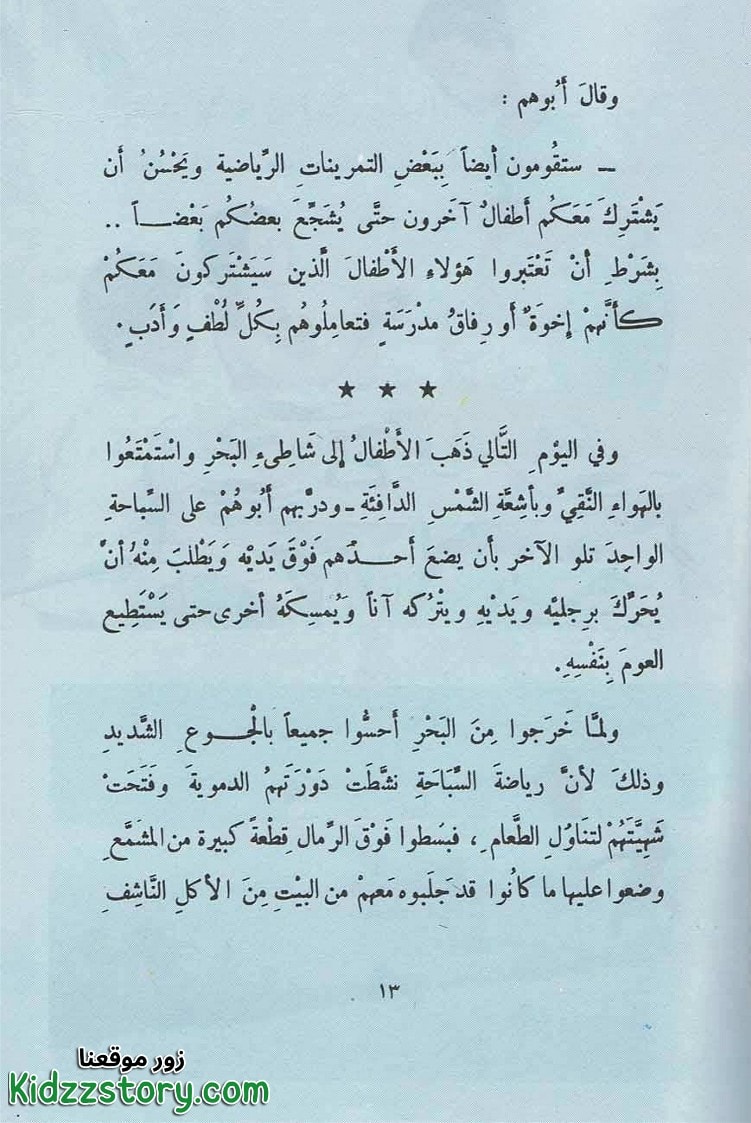 وقالَ أَبُوهم :
ــ ستقُومون أيضاً بِبَعْضِ التمرينَاتِ الرِّياضية ويَحْسُنُ أَن
يَشْتَرِكَ مَعَكُم أَطفالٌ آخَرون حتَّى يُشَجِّعَ بعضُكُم بَعْضـاً ..
بِشَرْطِ أنْ تَعْتَبروا هَؤلاءِ الأَطْفالَ الَّذين سَيَشْتَركونَ مَعَكُمْ
كأنَّهمْ إخوَةٌ أو رِفاقُ مدْرَسَةٍ فتعامِلُوهُم بِكُلِّ لُطْفٍ وَأَدَبٍ .
★ ★ ★
وفي اليوْمِ التَّالي ذَهَبَ الأَطْفالُ إلى شَاطِىءِ البَحْرِ واسْتَمْتَعُوا
بالهَواءِ النَّقِيِّ وبأشِعَّةِ الشَّمْسِ الدَّافِئَةِ ـ ودرَّبهم أَبُوهُمْ على السِّباحةِ
الواحِدَ تلو الآخر بأن يضعَ أحـدَهم فَوْقَ يَديْه وَيَطْلبَ مِنْهُ أنْ
يُحَرِّكَ برِجليْه ويَديْهِ ويتْرُكه آناً وَيُمسِكَهُ أخرى حتى يَسْتَطِيع
العومَ بِنَفْسِهِ .
ولمَّا خَرَجوا مِنَ البَحْرِ أَحسُّوا جميعاً بالْجُوعِ الشَّديدِ
وذلكَ لأنَّ رياضةَ السِّبَاحَةِ نشَّطَتْ دَوْرَتَهمُ الدمويةَ وفَتَحَتْ
شَهِيَّتَهُمْ لتنَاوُلِ الطَّعامِ ، فبسَطوا فَوْقَ الرِّمال قِطْعةً كبيرة من المشمَّعِ
وضعوا عليها ما كانُوا قد جَلَبوه معهمْ من البيْتِ مِنَ الأكلِ النَّاشِفِ
١٣
زور موقعنا
Kidzzstory.com